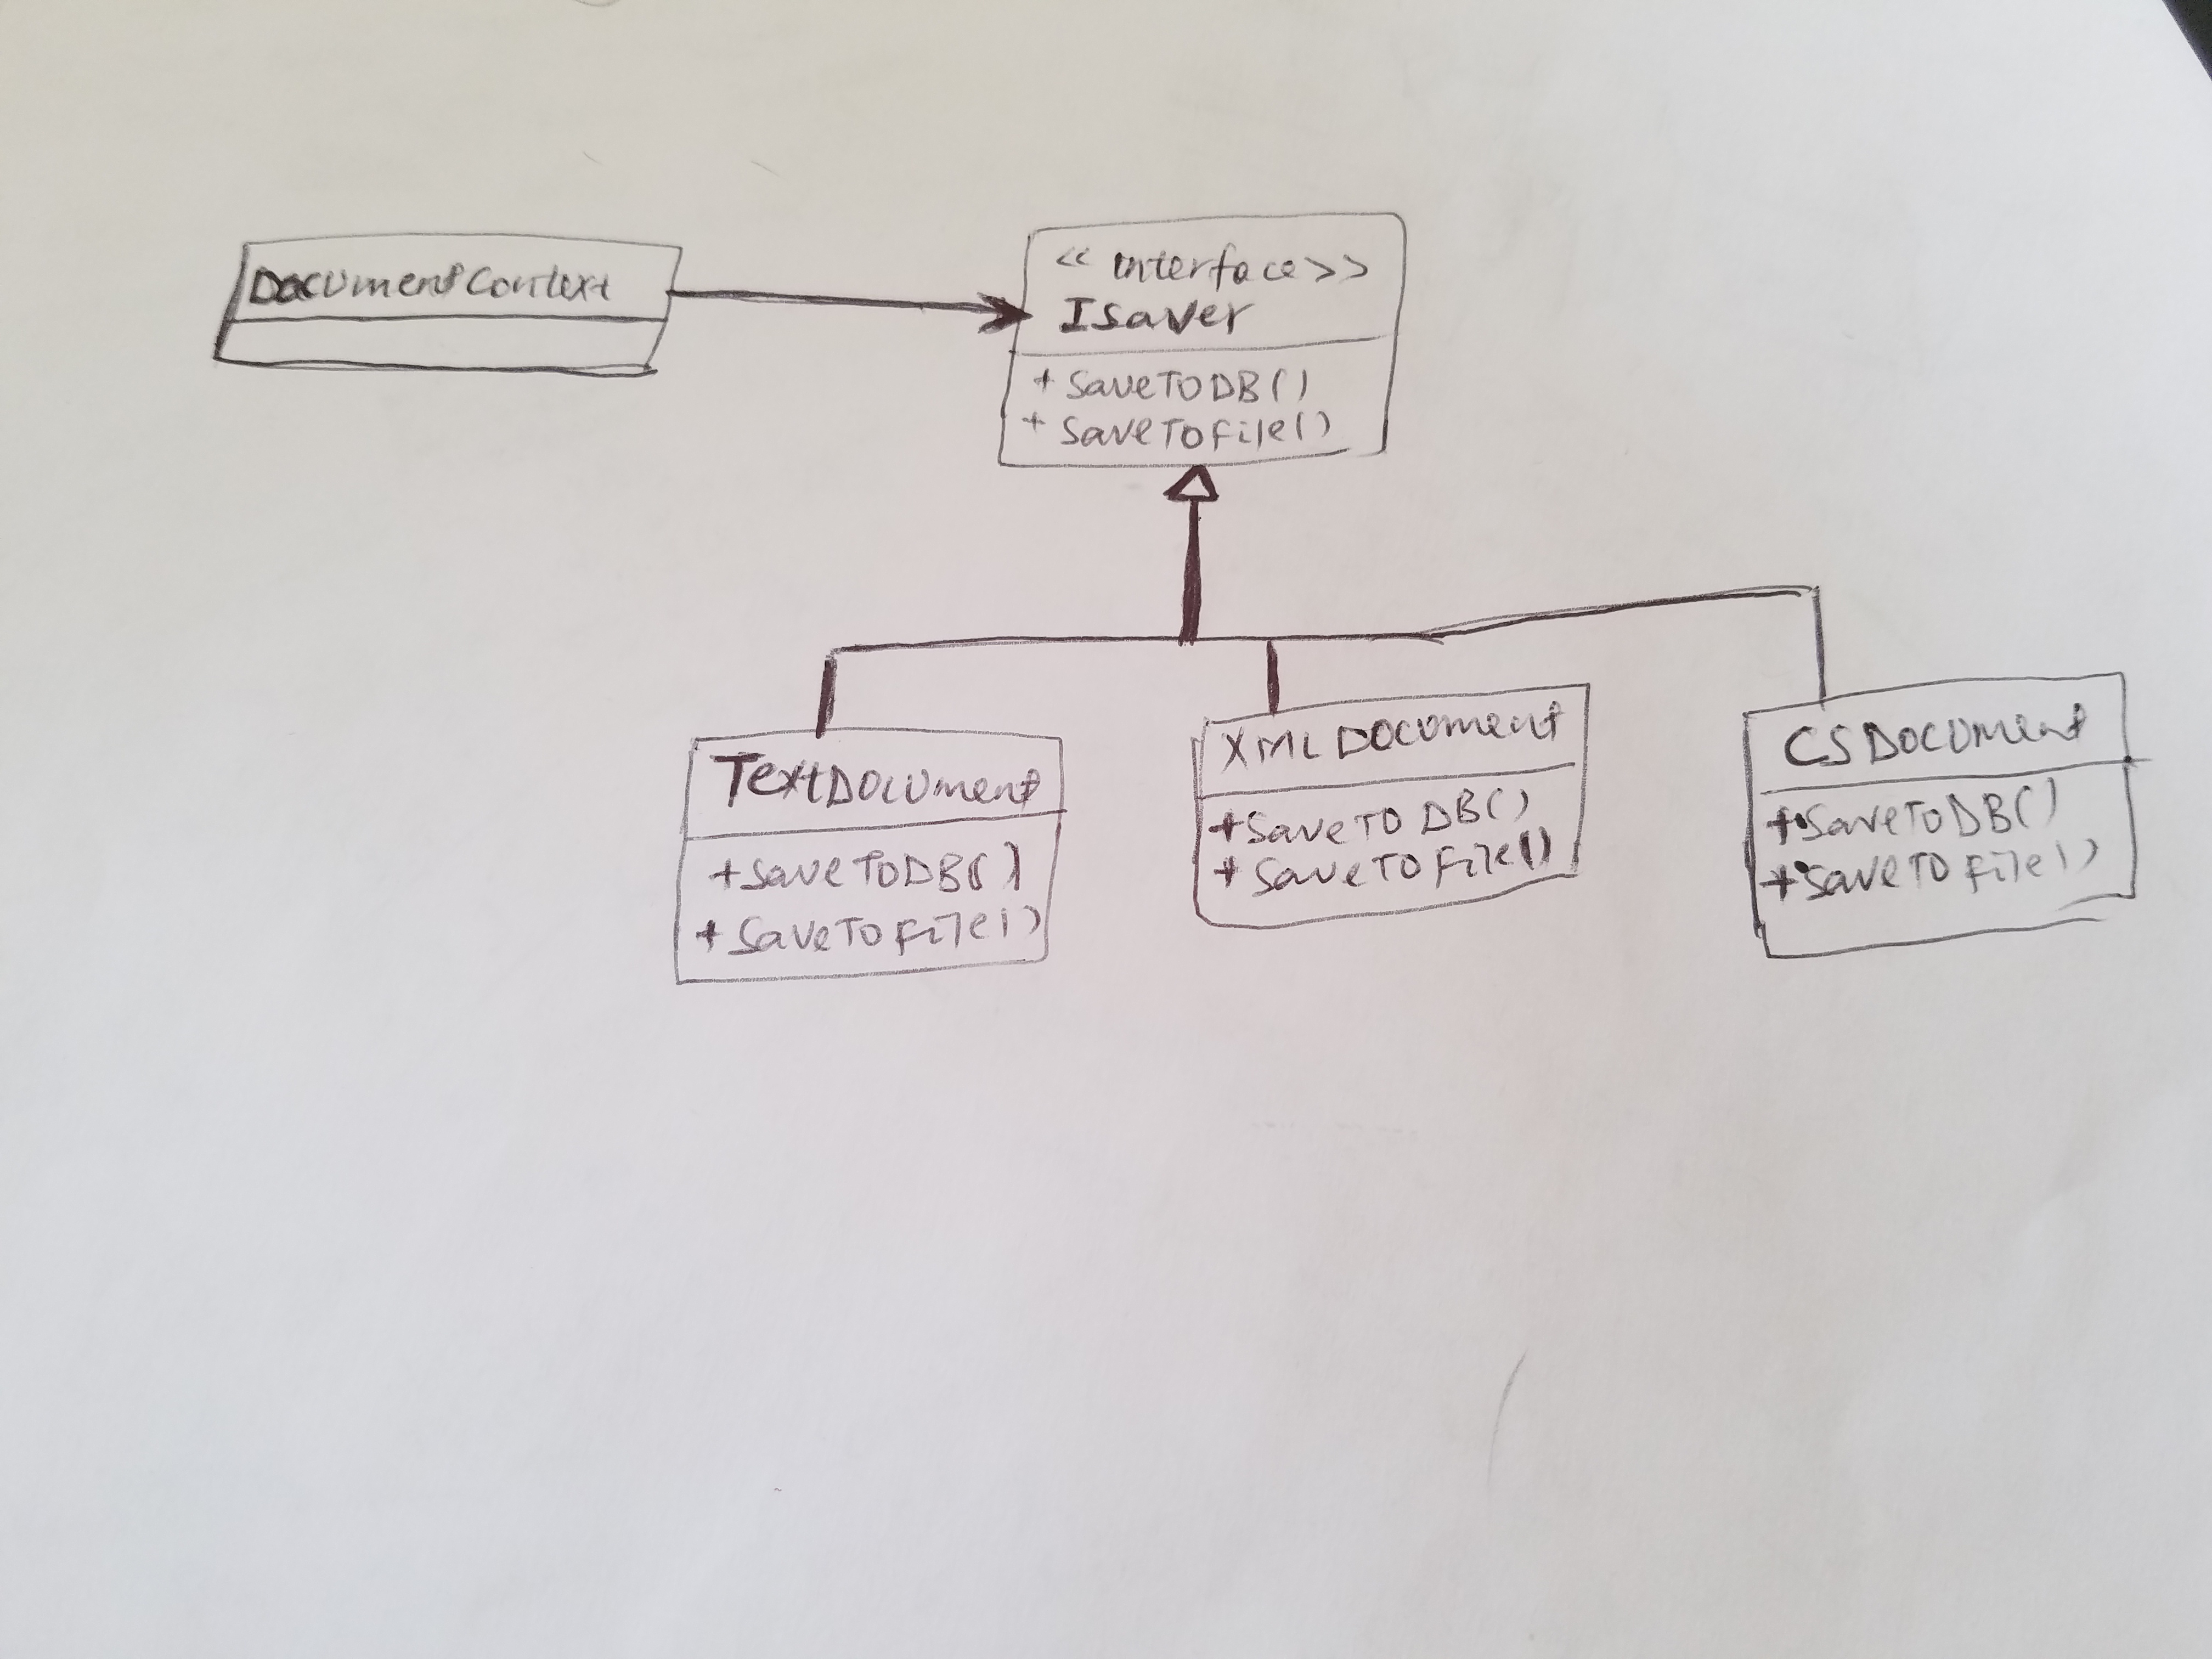 DocumentContext
<< interface >>
ISaver
+ SaveToDB()
+ SaveToFile()
TextDocument
+SaveToDB()
+ SaveToFile()
XMLDocument
+SaveToDB()
+ SaveToFile()
CSDocument
+SaveToDB()
+SaveToFile()